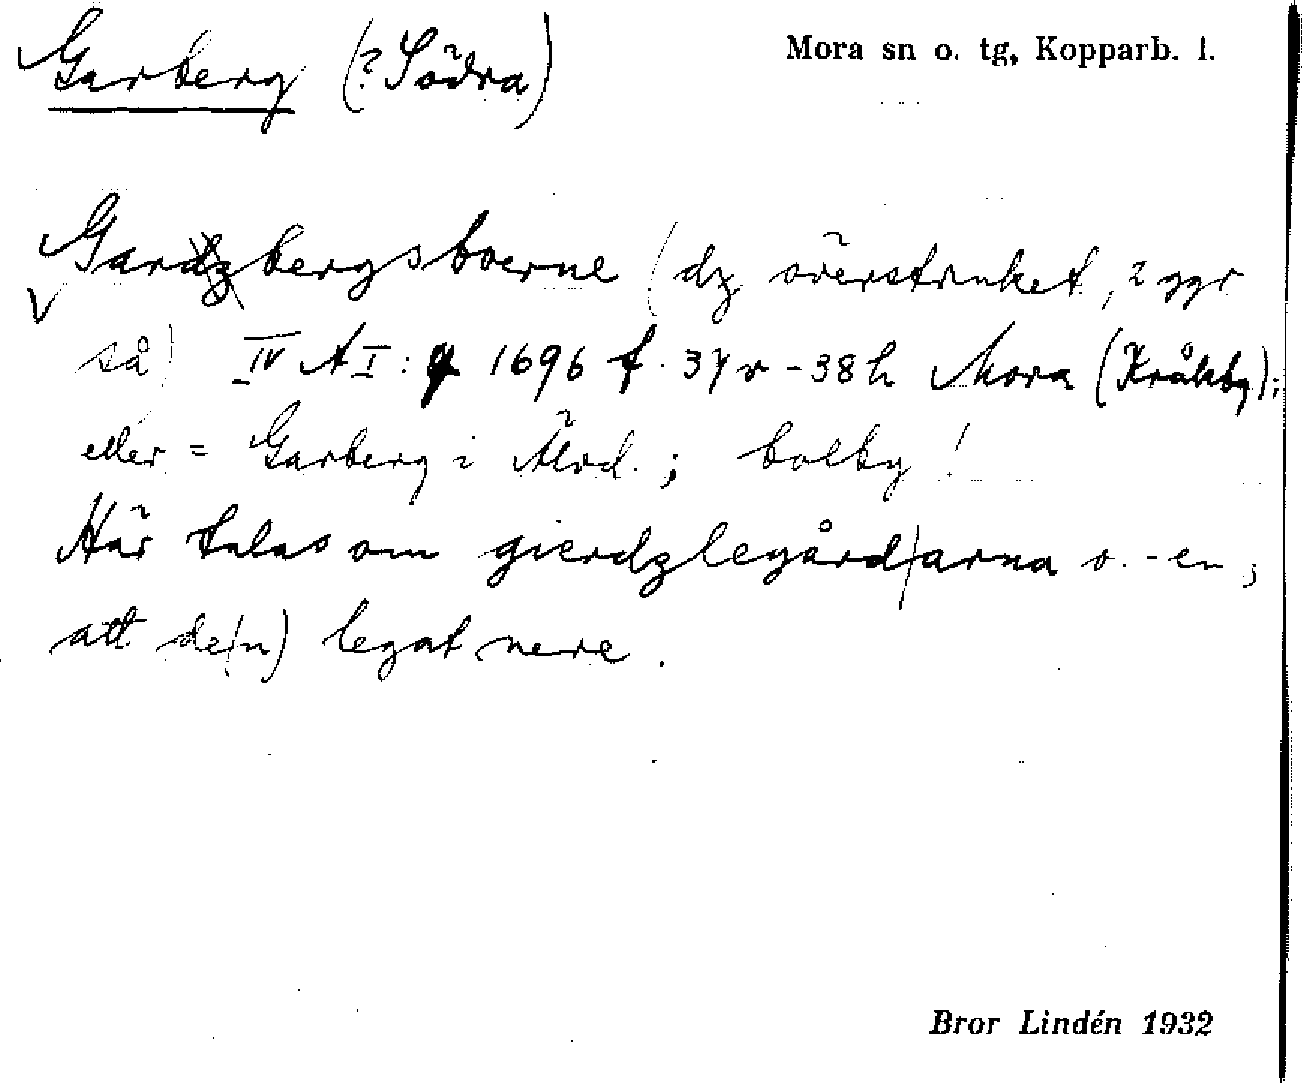 Garberg (? Södra)
Mora sn o. tg, Kopparb. l.
Gardzbergsboerne (dz överstruket, 2 ggr
så) IV A I: 1696 f. 37 v - 38 h Mora (Kråkbg);
eller = Garberg i Älvd.; bolby!
Här talas om gierdzlegård/arna o. -en;
att de(n) legat nere.
Bror Lindén 1932